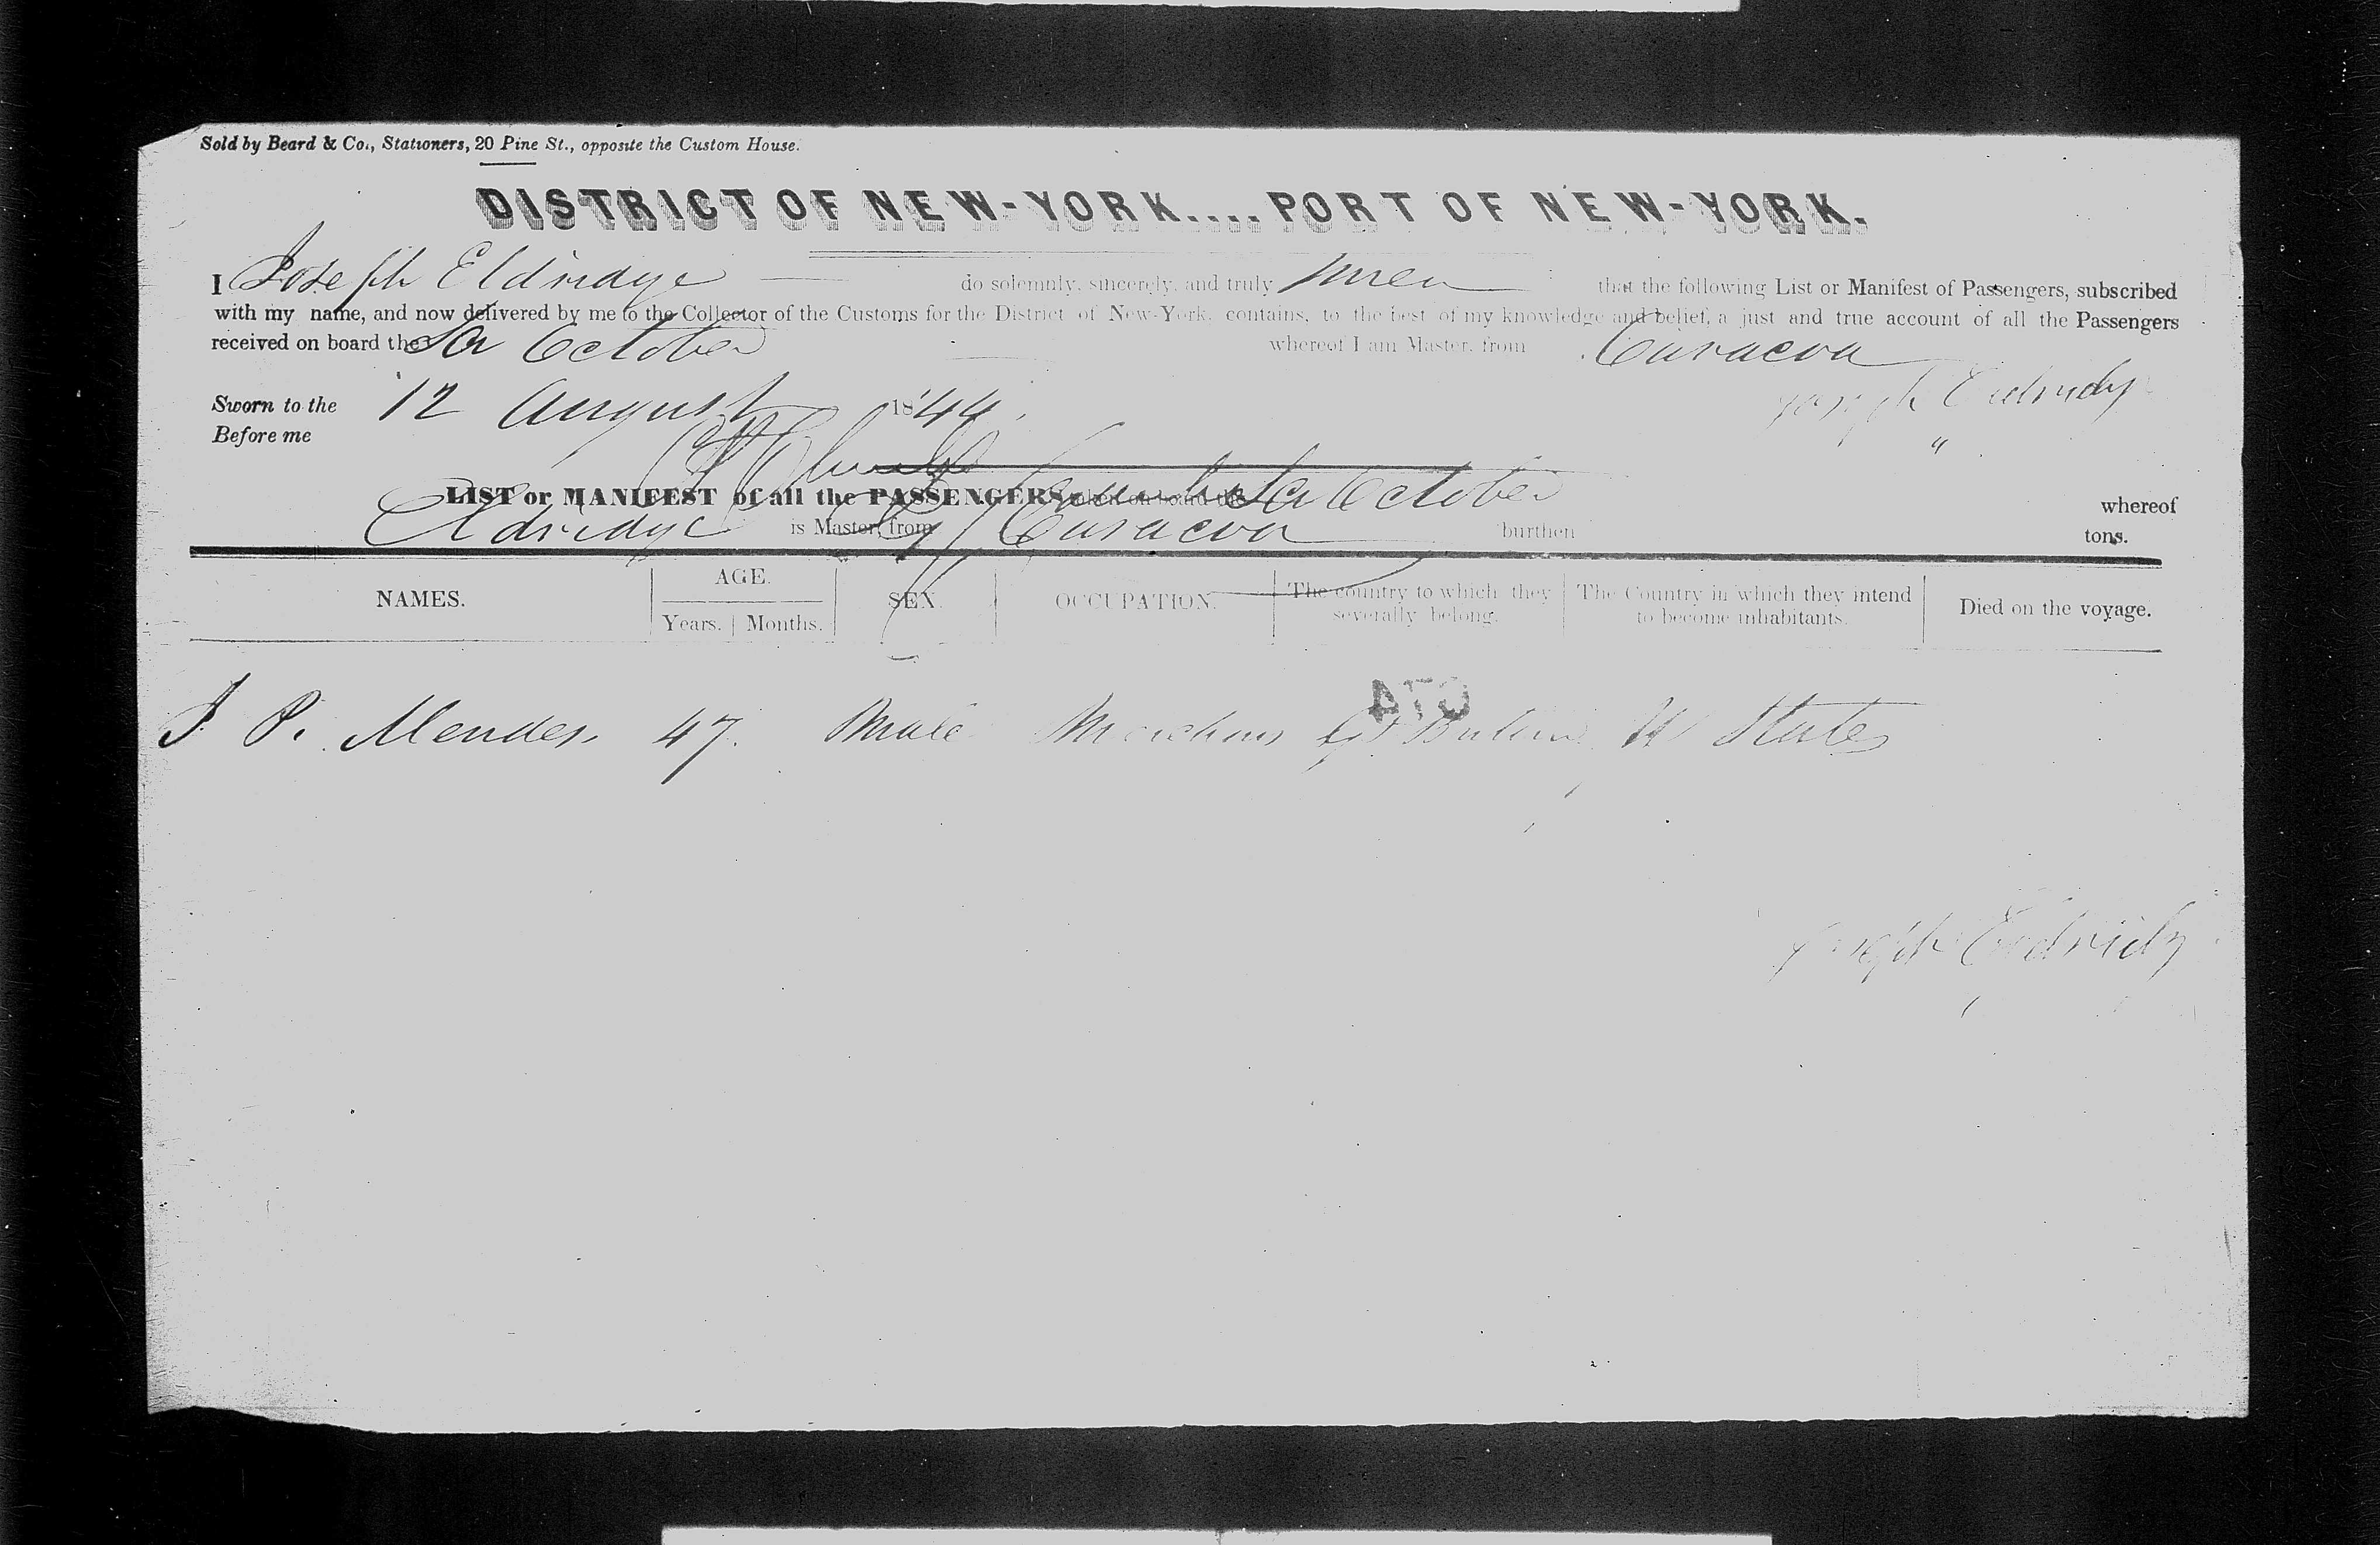 Sold by Beard & Co., Stationers, 20 Pine St., opposite the Custom House.
DISTRICT OF NEW-YORK....PORT OF NEW-YORK.
I Joseph Eldridge do solemnly, sincerely, and truly swear that the following List or Manifest of Passengers, subscribed
with my name, and now delivered by me to the Collector of the Customs for the District of New-York, contains, to the best of my knowledge and belief, a just and true account of all the Passengers
received on board the Scr October whereof I am Master, from Curacoa
Sworn to the 12 August 1844. Joseph Eldridg
Before me
LIST or MANIFEST of all the PASSENGERS taken on board the Scr October whereof
Eldridge is Master, from Curacoa burthen tons.
NAMES. AGE. SEX. OCCUPATION. The country to which they severally belong. The Country in which they intend to become inhabitants. Died on the voyage.
Years. Months.
J. P. Mendes. 47. Male Merchant Gt Britain U States
Joseph Eldridg